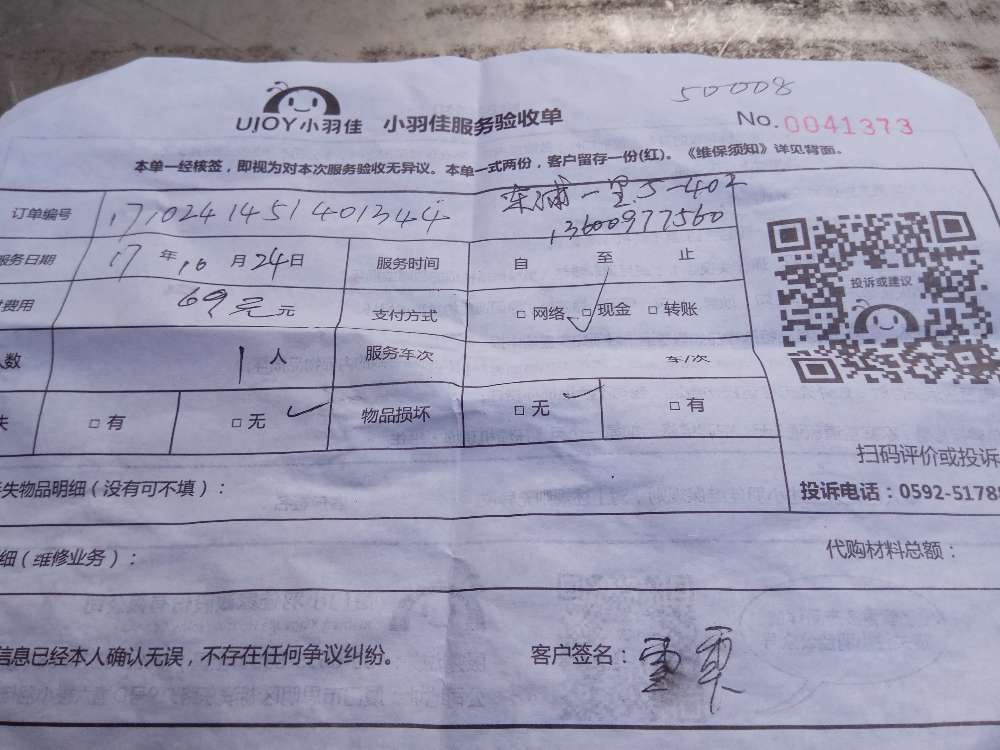 50008
UJOY小羽佳 小羽佳服务验收单 No.0041373
本单一经核签，即视为对本次服务验收无异议。本单一式两份，客户留存一份(红)。《维保须知》详见背面。
订单编号 17102414514013444 东浦一里5-402
13600977560
服务日期 17年10月24日 服务时间 自 至 止
费用 69元元 支付方式 □网络 □现金 □转账
投诉或建议
人数 1人 服务车次 车/次
失 □有 □无 ✓ 物品损坏 □无 ✓ □有
扫码评价或投诉
失物品明细（没有可不填）： 投诉电话：0592-5178
细（维修业务）： 代购材料总额：
信息已经本人确认无误，不存在任何争议纠纷。 客户签名：